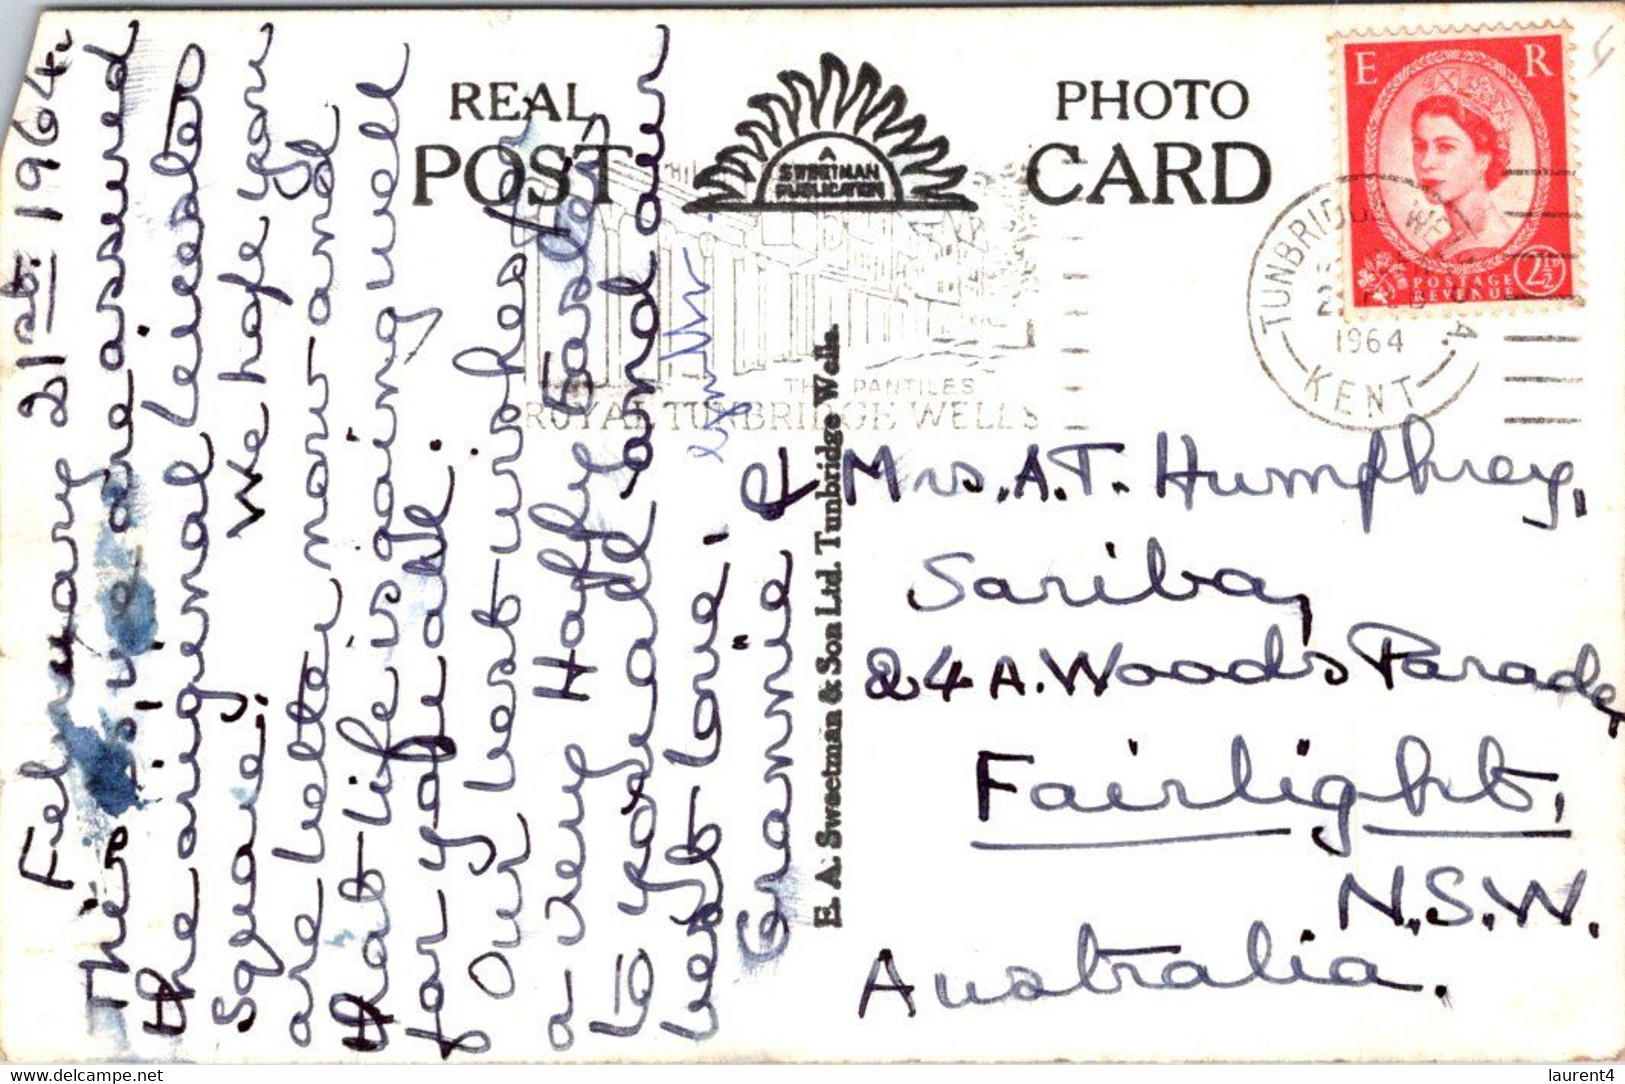 February 21st. 1964.
This is, we are assured
the original Leicester
Square! We hope you
are better now and
that life is going well
for you all.
Our best wishes for
a very Happy Easter
to you all and our
best love.
Grannie &
REAL PHOTO
POST CARD
A
SWEETMAN
PUBLICATION
E R
POSTAGE
REVENUE
2½D
TUNBRIDGE WELLS
1964
KENT
THE PANTILES
ROYAL TUNBRIDGE WELLS
E. A. Sweetman & Son Ltd. Tunbridge Wells.
Mrs. A.T. Humphrey,
Sariba,
24A. Woods Parade,
Fairlight,
N.S.W.
Australia.
delcampe.net
laurent4